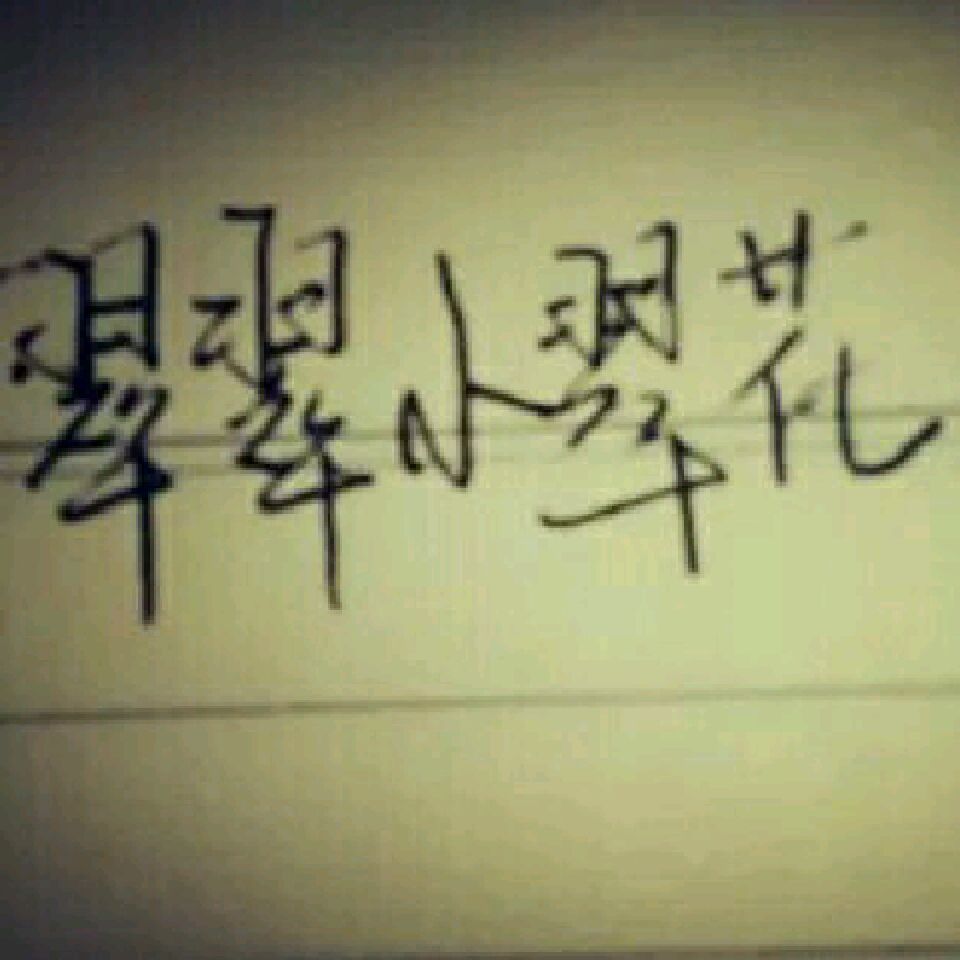 翠翠小翠花